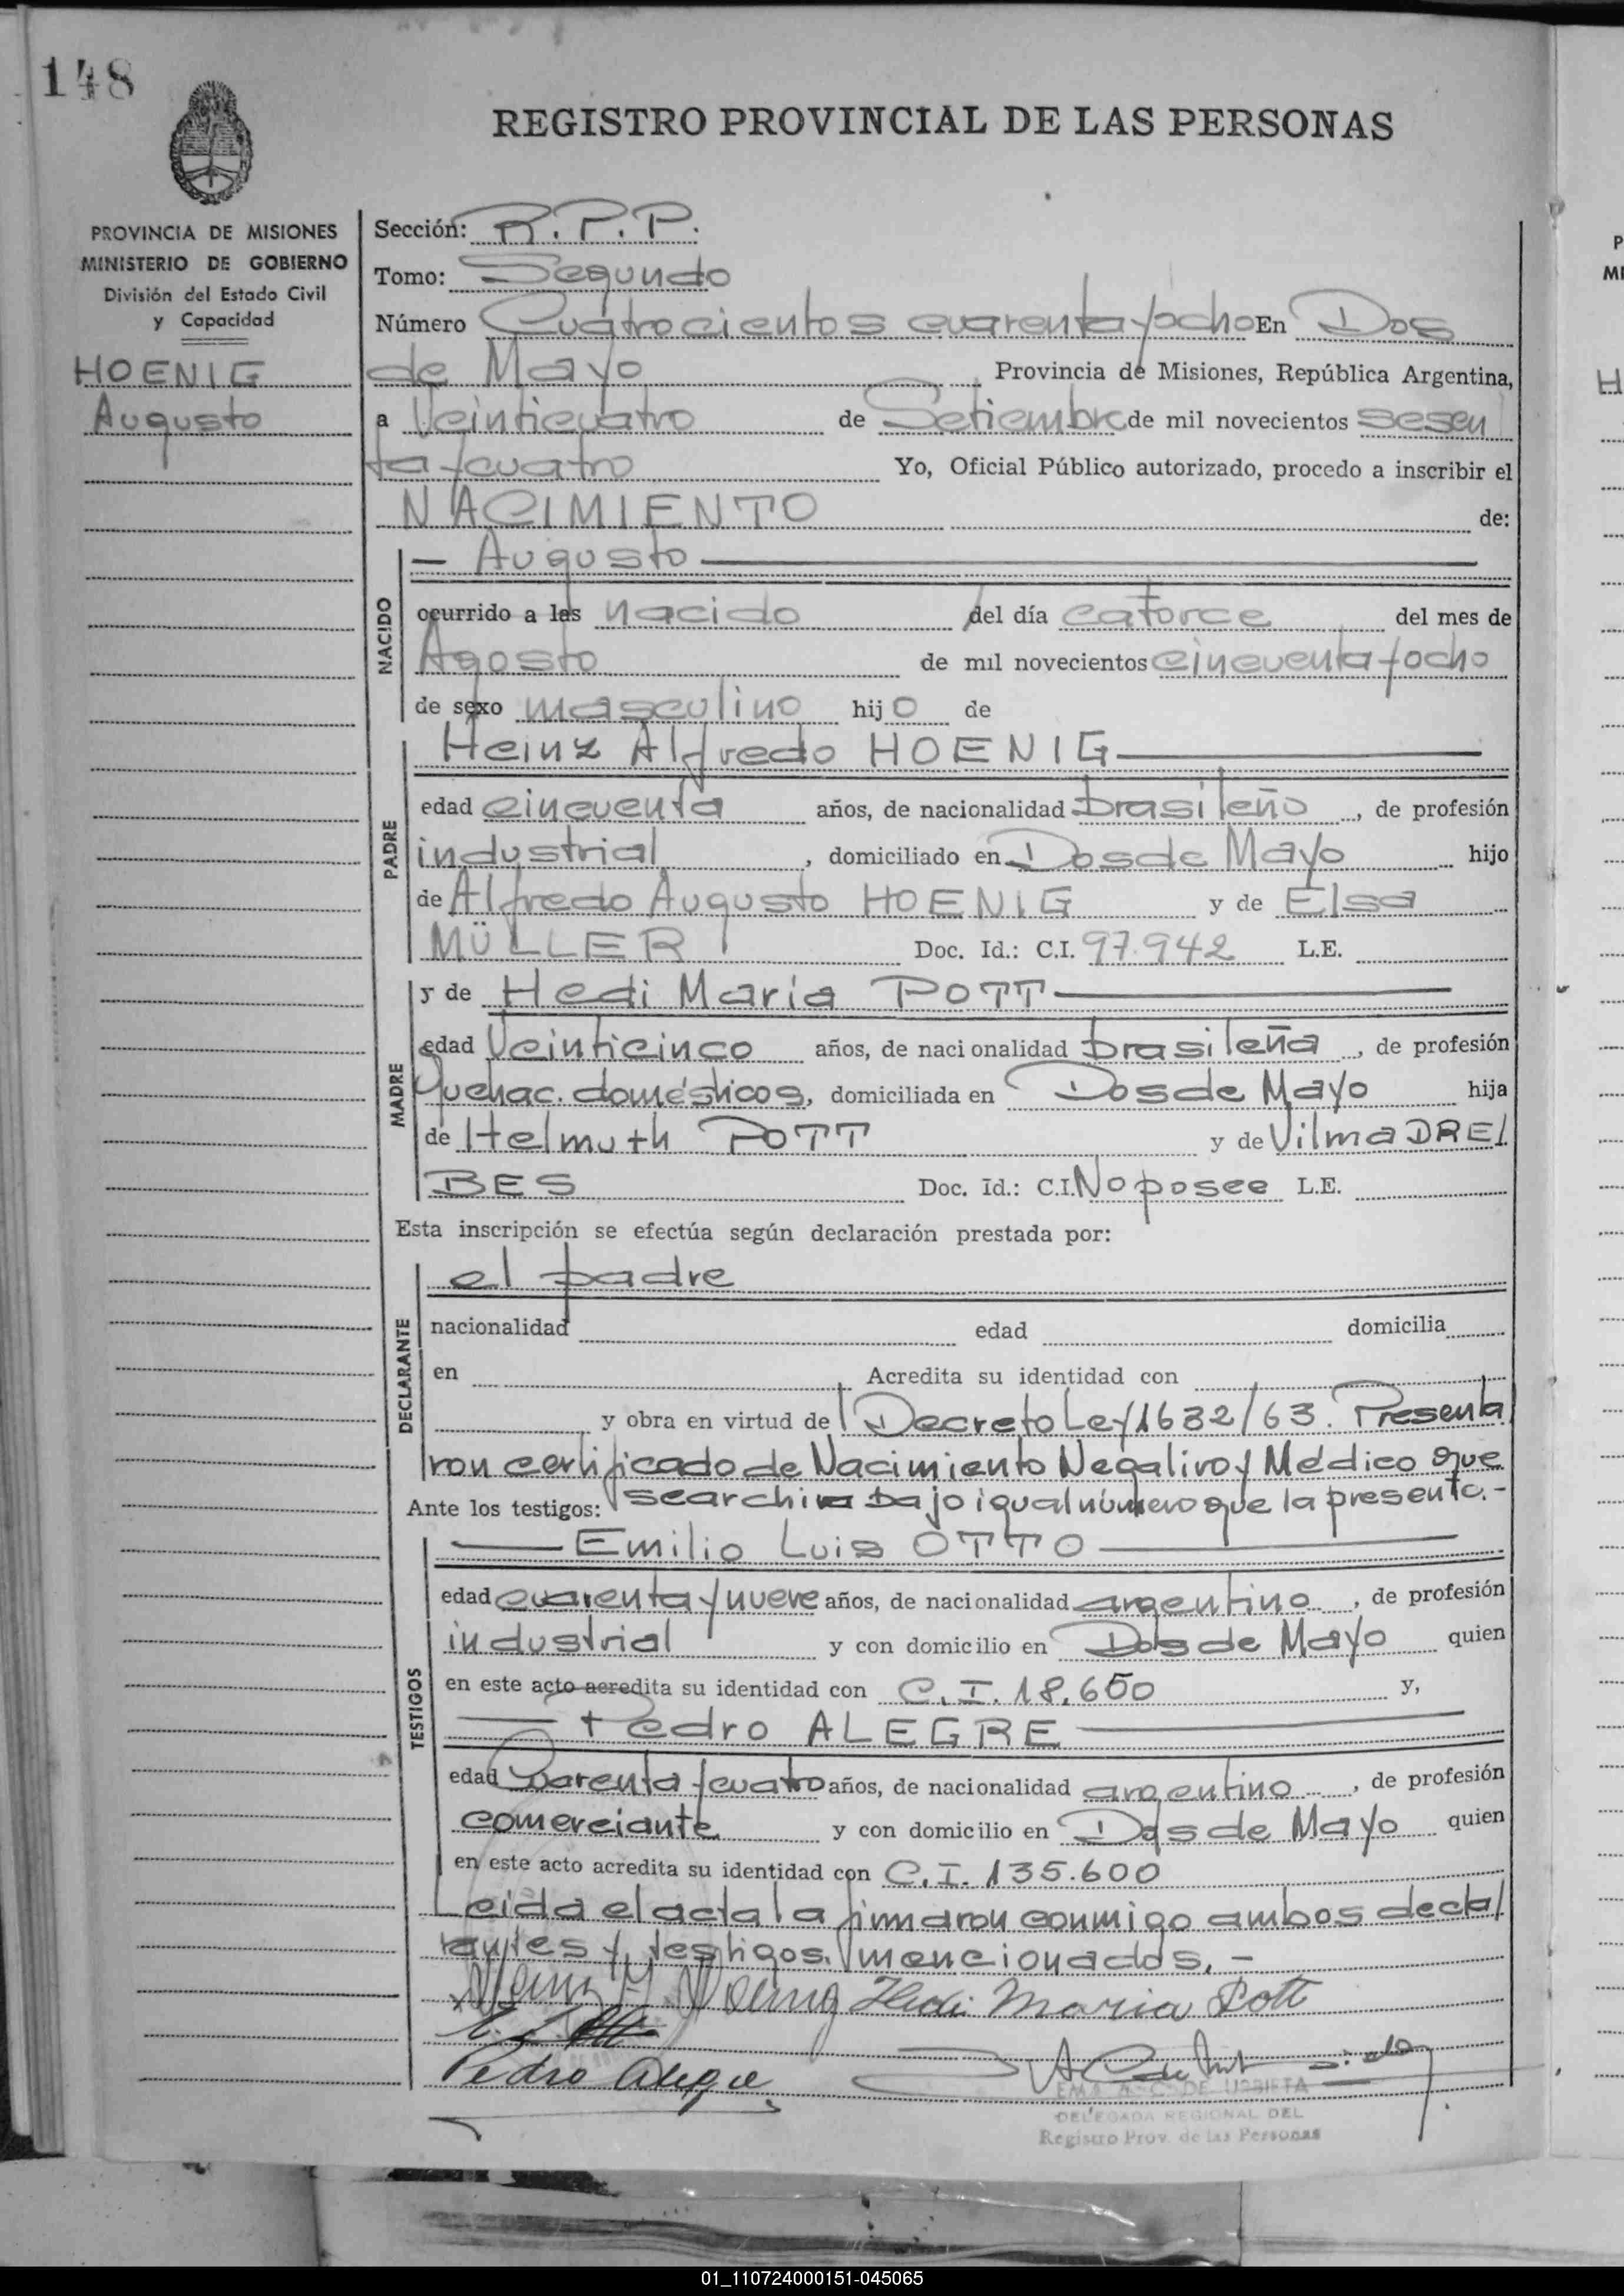 148
REGISTRO PROVINCIAL DE LAS PERSONAS
PROVINCIA DE MISIONES
MINISTERIO DE GOBIERNO
División del Estado Civil
y Capacidad
HOENIG
Augusto
Sección: R.P.P.
Tomo: Segundo
Número Cuatrocientos cuarenta y ocho En Dos
de Mayo Provincia de Misiones, República Argentina,
a Veinticuatro de Setiembre de mil novecientos sesen
ta y cuatro Yo, Oficial Público autorizado, procedo a inscribir el
NACIMIENTO de:
— Augusto —
NACIDO
ocurrido a las nacido del día catorce del mes de
Agosto de mil novecientos cincuenta y ocho
de sexo masculino hijo de
PADRE
Heinz Alfredo HOENIG —
edad cincuenta años, de nacionalidad brasileño, de profesión
industrial, domiciliado en Dos de Mayo hijo
de Alfredo Augusto HOENIG y de Elsa
MÜLLER Doc. Id.: C.I. 97.942 L.E.
MADRE
y de Hedi María POTT —
edad Veinticinco años, de nacionalidad brasileña, de profesión
Quehac. domésticos, domiciliada en Dos de Mayo hija
de Helmuth POTT y de Vilma DREI
BES Doc. Id.: C.I. No posee L.E.
Esta inscripción se efectúa según declaración prestada por:
DECLARANTE
el padre
nacionalidad edad domicilia
en Acredita su identidad con
y obra en virtud de Decreto Ley 1632/63. Presenta
ron certificado de Nacimiento Negativo y Médico que
Ante los testigos: se archiva bajo igual número que la presente.-
TESTIGOS
— Emilio Luis OTTO —
edad cuarenta y nueve años, de nacionalidad argentino, de profesión
industrial y con domicilio en Dos de Mayo quien
en este acto acredita su identidad con C.I. 18.600 y,
— Pedro ALEGRE —
edad Cuarenta y cuatro años, de nacionalidad argentino, de profesión
comerciante y con domicilio en Dos de Mayo quien
en este acto acredita su identidad con C.I. 135.600
Leida el acta la firmaron conmigo ambos decla/
rantes y testigos mencionados.-
Heinz A. Hoenig Hedi Maria Pott
Pedro Alegre
EMA A. C. DE URRIETA
DELEGADA REGIONAL DEL
Registro Prov. de las Personas
01_110724000151-045065